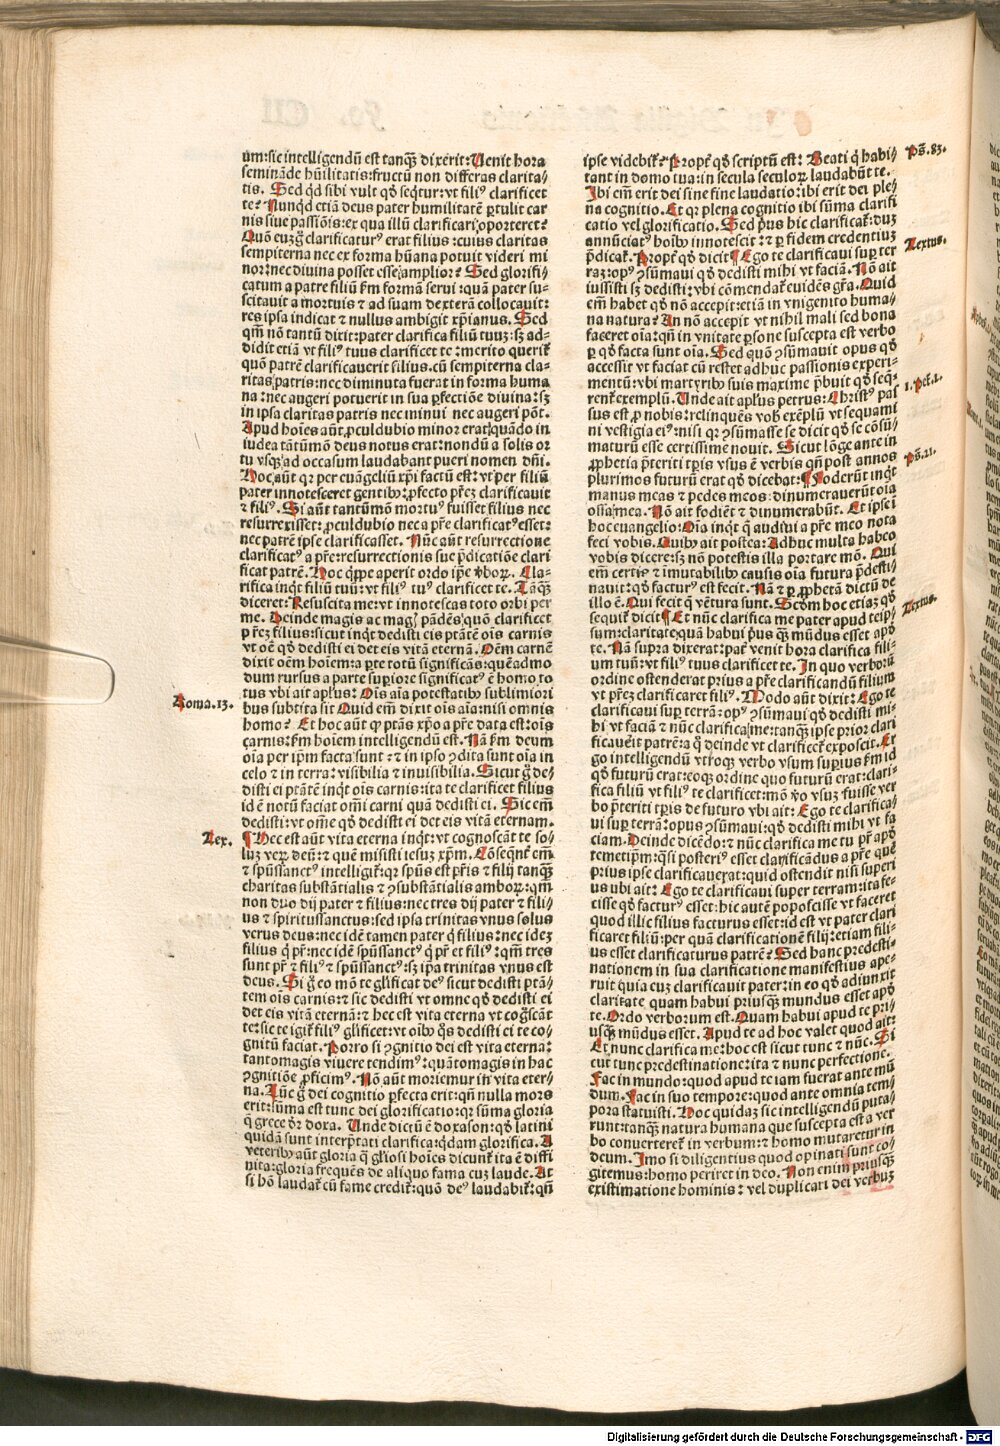 um: sic intelligendū est tanq̄ dixerit: Uenit hora
seminãde hūilitatis: fructū non differas clarita-
tis. Sed qd sibi vult qđ seqtur: vt filiꝰ clarificet
te? Nunqd etiã deus pater humilitatē ꝑtulit car
nis siue passiõis: ex qua illū clarificari oporteret?
Quõ eūg̊ clarificaturꝰ erat filius: cuius claritas
sempiterna nec ex forma hūana potuit videri mi
nor: nec diuina posset esse amplior? Sed glorifi-
catum a patre filiū km̄ formã serui: quã pater su-
scitauit a mortuis ⁊ ad suam dexterã collocauit:
res ipsa indicat ⁊ nullus ambigit xp̄ianus. Sed
qm̄ nõ tantū dixit: pater clarifica filiū tuū: sꝫ ad-
didit etiã vt filiꝰ tuus clarificet te: merito querit̄
quõ patrē clarificauerit filius. cū sempiterna cla-
ritas patris: nec diminuta fuerat in forma huma
na: nec augeri potuerit in sua ꝑfectiõe diuina: sꝫ
in ipsa claritas patris nec minui nec augeri põt.
Apud hoies aūt ꝓculdubio minor erat quãdo in
iudea tãtūmõ deus notus erat: nondū a solis or
tu vsqꝫ ad occasum laudabant pueri nomen dn̄i.
Hoc aūt qꝛ per euãgeliū xp̄i factū est: vt per filiū
pater innotesceret gentibꝰ: ꝓfecto pr̄eꝫ clarificauit
⁊ filiꝰ. Si aūt tantūmõ mortuꝰ fuisset filius nec
resurrexisset: ꝓculdubio nec a pr̄e clarificatꝰ esset:
nec patrē ipse clarificasset. Nūc aūt resurrectione
clarificatꝰ a pr̄e: resurrectionis sue p̄dicatiõe clari
ficat patrē. Hoc q̄ppe aperit ordo ip̄e v̓borꝝ. Cla-
rifica inqt filiū tuū: vt filiꝰ tuꝰ clarificet te. Tãqꝫ
diceret: Resuscita me: vt innotescas toto orbi per
me. Deinde magis ac magꝭ pãdēs quõ clarificet
p̄ r̄eꝫ filius: sicut inqt dedisti eis ptãtē oĩs carnis
vt oē qđ dedisti ei det eis vitã eternã. Oēm carnē
dixit oēm hoiem: a ꝑte totū significãs: quēadmo
dum rursus a parte supiore significatꝰ ē homo to
tus vbi ait aplꝰus: Oĩs aĩa potestatibꝰ sublimiori
bus subtita sit Quid em̄ dixit oĩs aĩa: nisi omnis
homo? Et hoc aūt qꝛ ptãs xp̄o a pr̄e data est: oĩs
carnis: km̄ hoiem intelligendū est. Nã km̄ deum
oĩa per ip̄m facta sunt: ⁊ in ipso ɔdita sunt oĩa in
celo ⁊ in terra: visibilia ⁊ inuisibilia. Sicut g̊ de-
disti ei ptãtē inqt oĩs carnis: ita te clarificet filius
id ē notū faciat om̄i carni quã dedisti ei. Sic em̄
dedisti: vt om̄e qđ dedisti ei det eis vitã eternam.
Tex. ¶ Hec est aūt vita eterna inqt: vt cognoscãt te so-
luꝫ veꝝ deū: ⁊ quē misisti iesuꝫ xp̄m. Cõseqn̄t em̄
⁊ spūssanctꝰ intelligit̄: qꝛ spūs est pr̄is ⁊ filij tanq̄
charitas substãtialis ⁊ ɔsubstãtialis amborꝝ: qm̄
non duo dij pater ⁊ filius: nec tres dij pater ⁊ fili-
us ⁊ spiritussanctus: sed ipsa trinitas vnus solus
verus deus: nec idē tamen pater q̄ filius: nec ideꝫ
filius q̄ pr̄: nec idē spūssanctꝰ q̄ pr̄ et filiꝰ: qm̄ tres
sunt pr̄ ⁊ filiꝰ ⁊ spūssanctꝰ: sꝫ ip̄a trinitas vnus est
deus. Si g̊ eo mõ te gl̄ificat deꝰ sicut dedisti ptã-
tem oĩs carnis: ⁊ sic dedisti vt omne qđ dedisti ei
det eis vitã eternã: ⁊ hec est vita eterna vt cog̊scãt
te: sic te igit̄ filiꝰ gl̄ificet: vt oĩbꝰ q̊s dedisti ei te co-
gnitū faciat. Porro si ɔgnitio dei est vita eterna:
tantomagis viuere tendimꝰ: quãtomagis in hac
ɔgnitiõe ꝓficimꝰ. Nõ aūt moriemur in vita eter-
na. Tūc g̊ dei cognitio ꝑfecta erit: qn̄ nulla mors
erit: sūma est tunc dei glorificatio: qꝛ sūma gloria
q̄ grece dr̄ doxa. Unde dictū ē doxason: qđ latini
quidã sunt interp̄tati clarifica: qdam glorifica. A
veteribꝰ aūt gloria q̄ gl̄iosi hoies dicunt̄ ita ē diffi
nita: gloria frequēs de aliquo fama cuꝫ laude. At
si hõ laudat̄ cū fame credit̄: quõ deꝰ laudabit̄: qn̄
Roma. 13.
ipse videbit̄? Propt̄ qđ scriptū est: Beati q̄ habi-
tant in domo tua: in secula seculoꝝ laudabūt te.
Ibi em̄ erit dei sine fine laudatio: ibi erit dei ple-
na cognitio. Et qꝛ plena cognitio ibi sūma clarifi
catio vel glorificatio. Sed p̄us hic clarificat̄: duꝫ
annūciatꝰ hoibꝰ innotescit: ⁊ ꝑ fidem credentiuꝫ
p̄dicat̄. Propt̄ qđ dicit ¶ Ego te clarificaui suꝑ ter
raꝫ: opꝰ ɔsūmaui qđ dedisti mihi vt faciã. Nõ ait
iussisti sꝫ dedisti: vbi cõmendat̄ euidēs gr̄a. Quid
em̄ habet qđ nõ accepit: etiã in vnigenito huma-
na natura? An nõ accepit vt nihil mali sed bona
faceret oĩa: qn̄ in vnitate ꝑsone suscepta est verbo
ꝑ qđ facta sunt oĩa. Sed quõ ɔsūmauit opus qđ
accessit vt faciat cū restet adhuc passionis experi-
mentū: vbi martyribꝰ suis maxime p̄buit qđ seq-
rent̄ exemplū. Unde ait aplꝰus petrus: Christꝰ pas
sus est ꝓ nobis: relinquēs vob̄ exēplū vt sequami
ni vestigia eiꝰ: nisi qꝛ ɔsūmasse se dicit qđ se cõsū-
maturū esse certissime nouit. Sicut lõge ante in
ꝓphetia p̄teriti tꝑis vsus ē verbis qn̄ post annos
plurimos futurū erat qđ dicebat: ¶ Foderūt inqt
manus meas ⁊ pedes meos: dinumerauerūt oĩa
ossa mea. Nõ ait fodiēt ⁊ dinumerabūt. Et ipse ĩ
hoc euangelio: Oĩa inqt q̄ audiui a pr̄e meo nota
feci vobis. Quibꝰ ait postea: Adhuc multa habeo
vobis dicere: sꝫ nõ potestis illa portare mõ. Qui
em̄ certis ⁊ ĩmutabilibꝰ causis oĩa futura p̄desti-
nauit: qđ facturꝰ est fecit. Nã ⁊ ꝑ ꝓphetã dictū de
illo ē. Qui fecit q̄ vētura sunt. Scdm̄ hoc etiaꝫ qđ
sequit̄ dicit ¶ Et nūc clarifica me pater apud teip-
sum: claritate quã habui p̄us qꝫ mūdus esset apđ
te. Nã supra dixerat: pat̄ venit hora clarifica fili-
um tuū: vt filius tuus clarificet te. In quo verborū
ordine ostenderat prius a pr̄e clarificandū filium
vt pr̄eꝫ clarificaret filiꝰ. Modo aūt dixit: Ego te
clarificaui suꝑ terrã: opꝰ ɔsūmaui qđ dedisti mi-
hi vt faciã ⁊ nūc clarifica me: tanq̄ ipse prior clari
ficauerit patrē: a q̊ deinde vt clarificet̄ exposcit. Er
go intelligendū vtroqꝫ verbo vsum supius km̄ id
qđ futurū erat: eoqꝫ ordine quo futurū erat: clari-
fica filiū vt filiꝰ te clarificet: mõ v̓o vsuꝫ fuisse ver
bo p̄teriti tꝑis de futuro vbi ait: Ego te clarifica-
ui suꝑ terrã: opus ɔsūmaui: qđ dedisti mihi vt fa
ciam. Deinde dicēdo: ⁊ nūc clarifica me tu pr̄ apđ
temetip̄m: q̄si posteriꝰ esset clarificãdus a pr̄e quē
prius ipse clarificauerat: quid ostendit nisi superi
us ubi ait: Ego te clarificaui super terram: ita fe-
cisse qđ facturꝰ esset: hic autē poposcisse vt faceret
quod illic filius facturus esset: id est vt pater clari
ficaret filiū: per quã clarificationē filij: etiam fili-
us esset clarificaturus patrē? Sed hanc predesti-
nationem in sua clarificatione manifestius ape-
ruit quia cuꝫ clarificauit pater: in eo qđ adiunxit
claritate quam habui priusqꝫ mundus esset apđ
te. Ordo verborum est. Quam habui apud te pri-
usqꝫ mūdus esset. Apud te ad hoc valet quod ait:
Et nunc clarifica me: hoc est sicut tunc ⁊ nūc. Si
cut tunc predestinatione: ita ⁊ nunc perfectione.
Fac in mundo: quod apud te iam fuerat ante mū
dum. Fac in suo tempore: quod ante omnia tem-
pora statuisti. Hoc quidaꝫ sic intelligendū puta-
runt: tanq̄ natura humana que suscepta est a ver
bo conuerteret̄ in verbum: ⁊ homo mutaretur in
deum. Imo si diligentius quod opinati sunt co-
gitemus: homo periret in deo. Non enim priusqꝫ
existimatione hominis: vel duplicati dei verbuꝫ
Ps̄. 83.
Textus.
1. Pet̄. 1.
Ps̄. 21.
Textus.
Digitalisierung gefördert durch die Deutsche Forschungsgemeinschaft - DFG